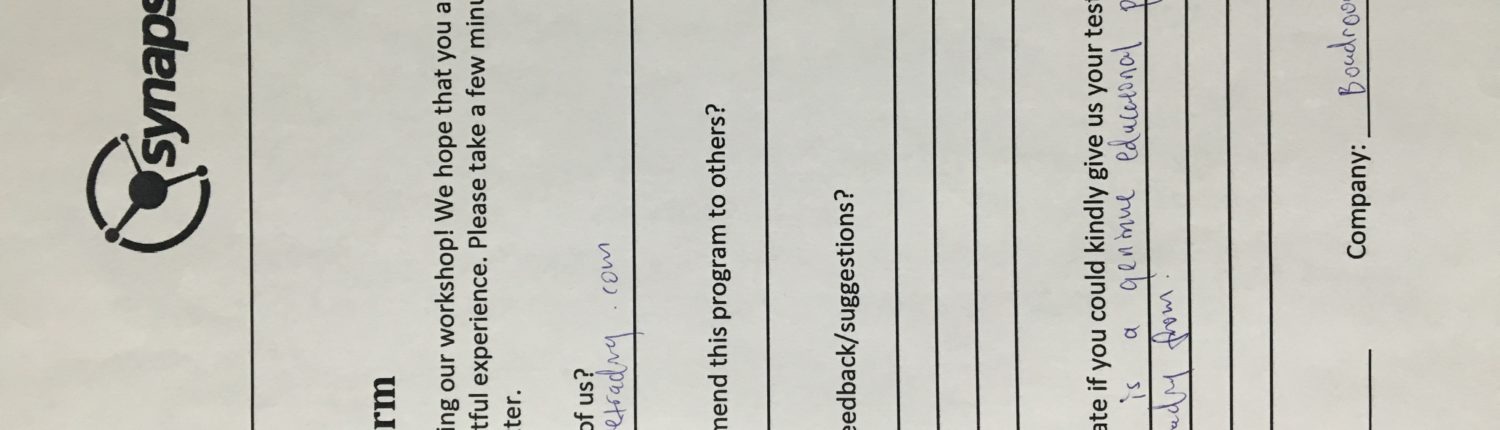 synaps
rm
ing our workshop! We hope that you a
tful experience. Please take a few minu
ter.
of us?
etradry.com
mend this program to others?
eedback/suggestions?
ate if you could kindly give us your test
is a genuine educational p
adry from.
Company: Boudroo